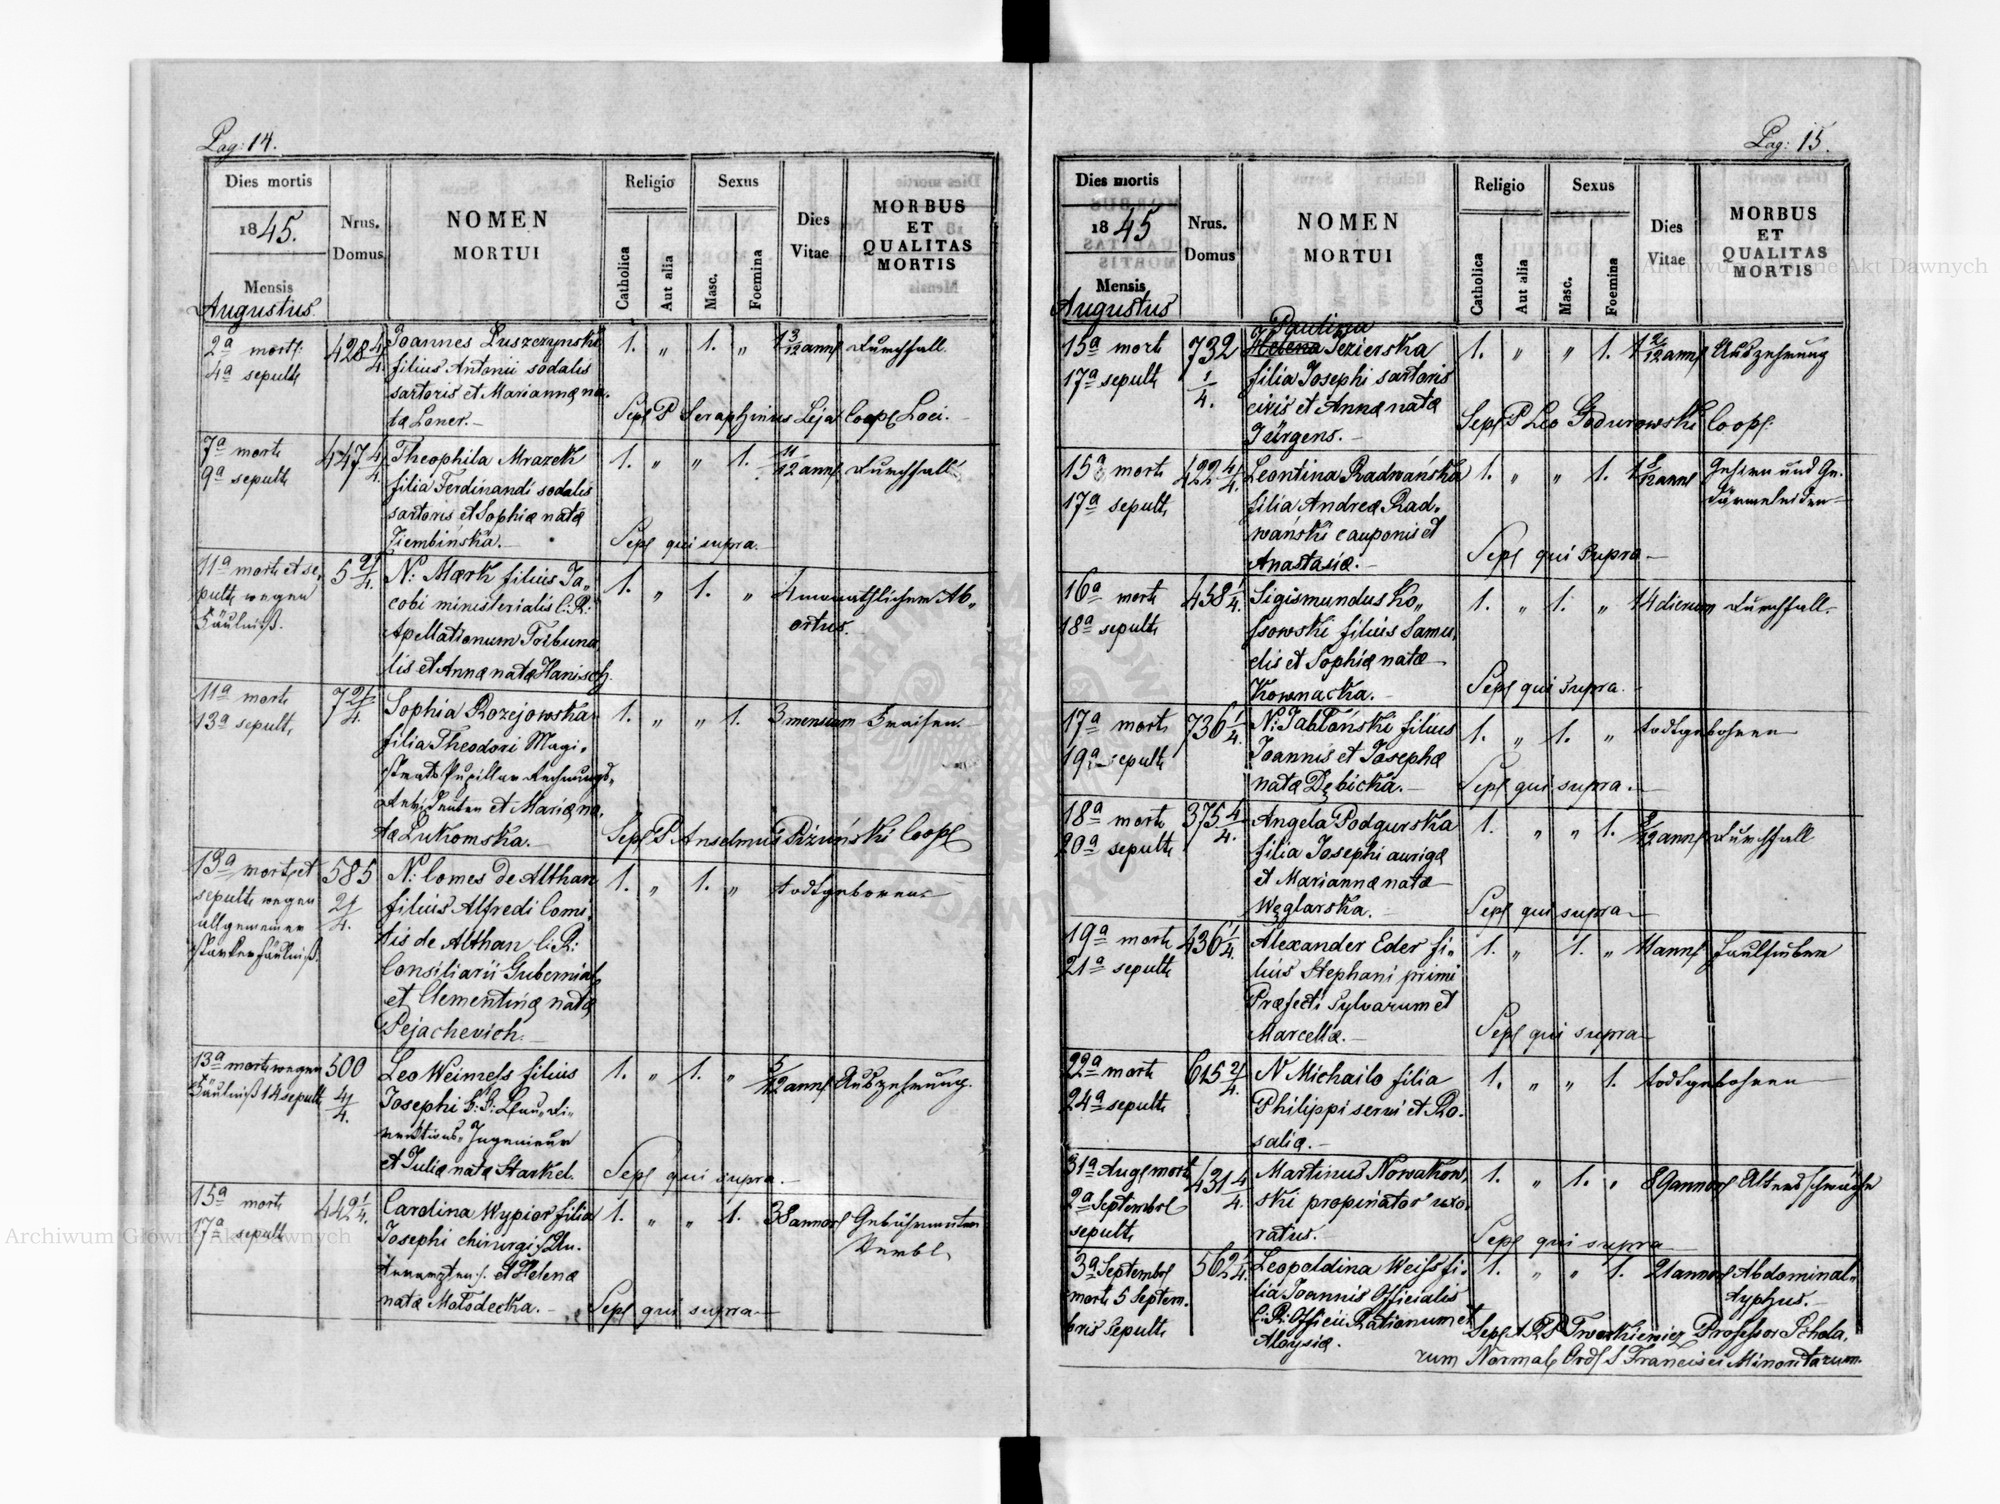 Pag: 14.
Dies mortis
1845.
Mensis
Augustus
Nrus.
Domus
NOMEN
MORTUI
Religio
Catholica
Aut alia
Sexus
Masc.
Foemina
Dies
Vitae
MORBUS
ET
QUALITAS
MORTIS
2a mort:
4a sepult:
428 4/4
Joannes Łuszczynski
filius Antonii sodalis
sartoris et Mariannæ na-
tæ Loner.
1. " 1. " 1 3/12 ann: Durchfall
Sep: P Seraphinus Leja Coop: Loci.
7a mort:
9a sepult:
447 4/4
Theophila Mrazek
filia Ferdinandi sodalis
sartoris et Sophiæ natæ
Ziembińska.
1. " " 1. 11/12 ann: Durchfall
Sep: qui supra.
11a mort: et se-
pult: wegen
Fäulniß.
5 2/4
N: Mark filius Ja-
cobi ministerialis C: R:
Apellationum Tribuna
lis et Annæ natæ Hanisch
1. " 1. " 4 monathlichen Ab-
ortus.
11a mort:
13a sepult:
7 2/4
Sophia Rozejowska
filia Theodori Magi-
strats Pupillar Rechnungs-
Revidenten et Mariæ na-
tæ Łukomska.
1. " " 1. 3 mensium Fraisen.
Sep: P Anselmus Piżuński Coop:
13a mort: et
sepult: wegen
allgemeiner
starker Fäulniß.
585
2/4.
N: Comes de Althan
filius Alfredi Comi-
tis de Althan C: R:
Consiliarii Gubernial:
et Clementinæ natæ
Pejachevich.
1. " 1. " todtgeboren.
13a mort: wegen
Fäulniß 14 sepult:
500
4/4.
Leo Weimess filius
Josephi
Ingenieur
et Juliæ natæ Starkel.
1. " 1. " 5/12 ann: Auszehrung.
Sep: qui supra.
15a mort:
17a sepult:
442 1/4.
Carolina Wypior filia
Josephi chirurgi
et Helenæ
natæ Mołodecka.
1. " " 1. 38 annor: Gebährmutter
Sep: qui supra
Pag: 15.
Dies mortis
1845
Mensis
Augustus
Nrus.
Domus
NOMEN
MORTUI
Religio
Catholica
Aut alia
Sexus
Masc.
Foemina
Dies
Vitae
MORBUS
ET
QUALITAS
MORTIS
15a mort:
17a sepult:
732
1/4.
Paulina
Helena Jezierska
filia Josephi sartoris
civis et Annæ natæ
Jürgens.
1. " " 1. 1 2/12 ann: Auszehrung
Sep: P Leo Godurowski Coop:
15a mort:
17a sepult:
422 4/4.
Leontina Radwańska
filia Andreæ Rad-
wański cauponis et
Anastasiæ.
1. " " 1. 1 8/12 ann: Gehirn und Ge-
därmeleiden
Sep: qui supra
16a mort:
18a sepult:
458 1/4.
Sigismundus Ko-
ssowski filius Samu-
elis et Sophiæ natæ
Kownacka.
1. " 1. " 14 dierum Durchfall.
Sep: qui supra.
17a mort:
19a sepult:
736 1/4.
N: Jabłoński filius
Joannis et Josephæ
natæ Dębicka.
1. " 1. " todtgebohren
Sep: qui supra.
18a mort:
20a sepult:
375 4/4.
Angela Podgurska
filia Josephi aurigæ
et Mariannæ natæ
Węglarska.
1. " " 1. 8/12 ann: Durchfall
Sep: qui supra
19a mort:
21a sepult:
436 1/4.
Alexander Eder fi-
lius Stephani primi
Præfecti Sylvarum et
Marcellæ.
1. " 1. " 11 ann: Faulfieber
Sep: qui supra
22a mort:
24a sepult:
615 2/4.
N Michailo filia
Philippi servi et Ro-
saliæ.
1. " " 1. todtgebohren
31a Aug: mort:
2a Septembr:
sepult:
431 4/4.
Martinus Nowakow-
ski propinator uxo-
ratus.
1. " 1. " 89 annor: Altersschwäche
Sep: qui supra
3a Septembr:
mort: 5 Septem-
bris sepult:
562 1/4.
Leopoldina Weiss fi-
lia Joannis Officialis
C: R: Officii Rationum et
Aloysiæ.
1. " " 1. 21 annor: Abdominal-
typhus.
Sep: Professor Schola-
rum Normal: Ord: S Francisci Minoritarum.
Archiwum Główne Akt Dawnych
Archiwum Główne Akt Dawnych